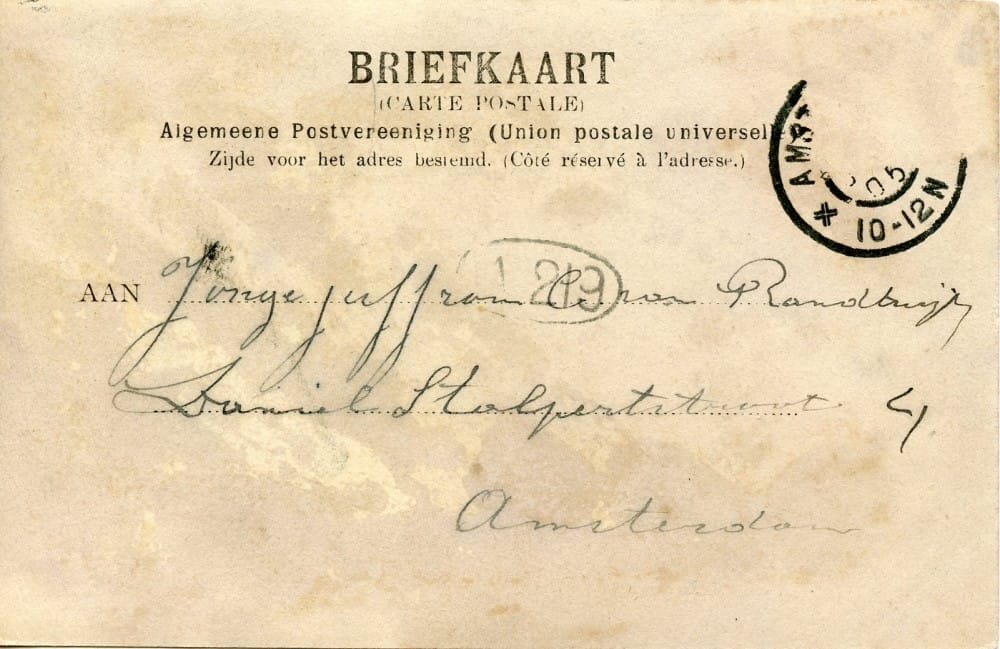 BRIEFKAART
(CARTE POSTALE)
Algemeene Postvereeniging (Union postale universelle)
Zijde voor het adres bestemd. (Côté réservé à l'adresse.)
AMS
05
10-12N
1219
AAN Jonge juffrou C. van Randwijk
Daniel Stalpertstraat 4
Amsterdam